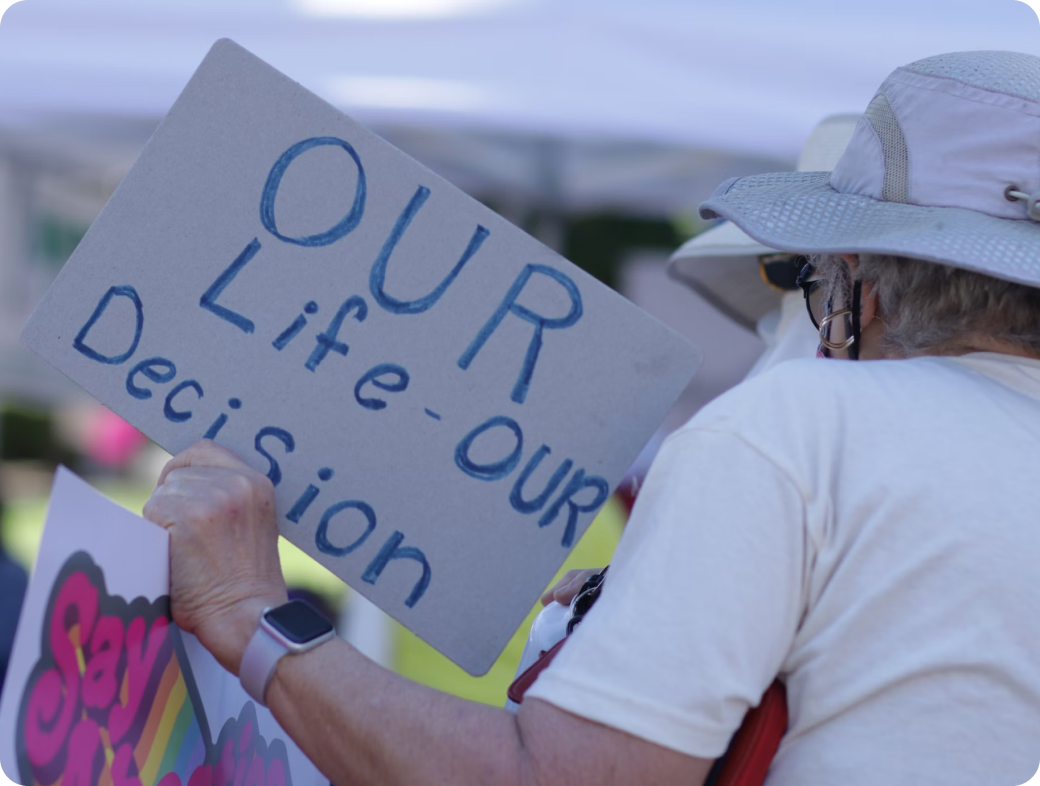 OUR
Life-OUR
Decision
Say